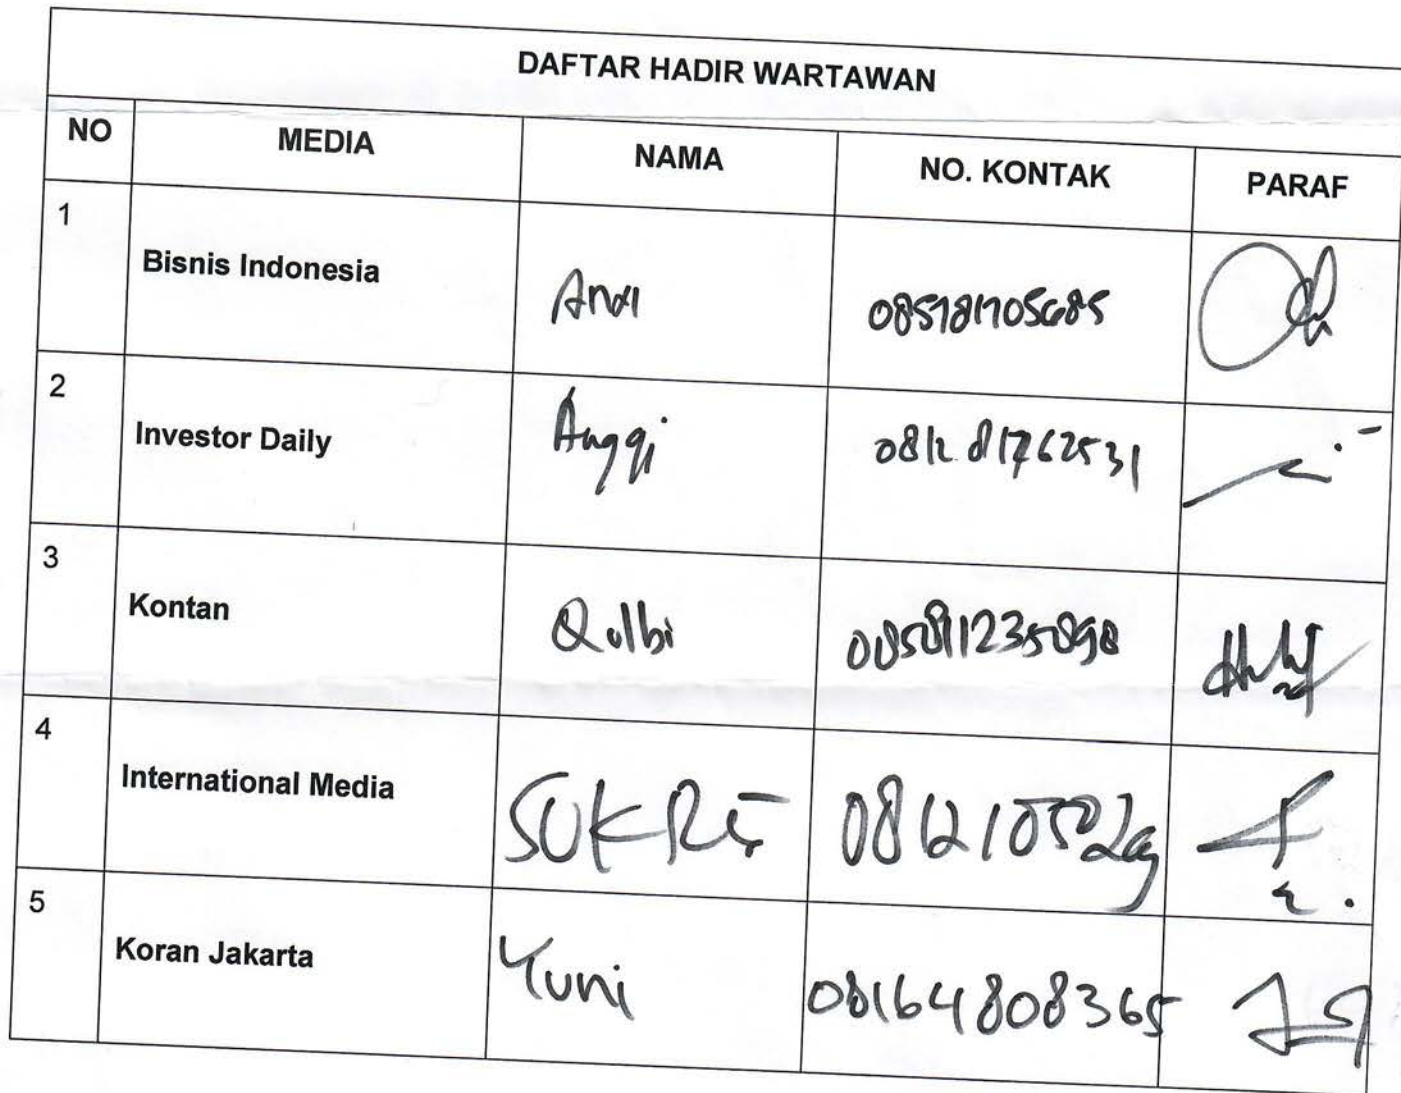 DAFTAR HADIR WARTAWAN
NO MEDIA NAMA NO. KONTAK PARAF
1 Bisnis Indonesia
2 Investor Daily Anggi 081281762531
3 Kontan Qulbi
4 International Media SUKRI
5 Koran Jakarta Yuni 08164808365